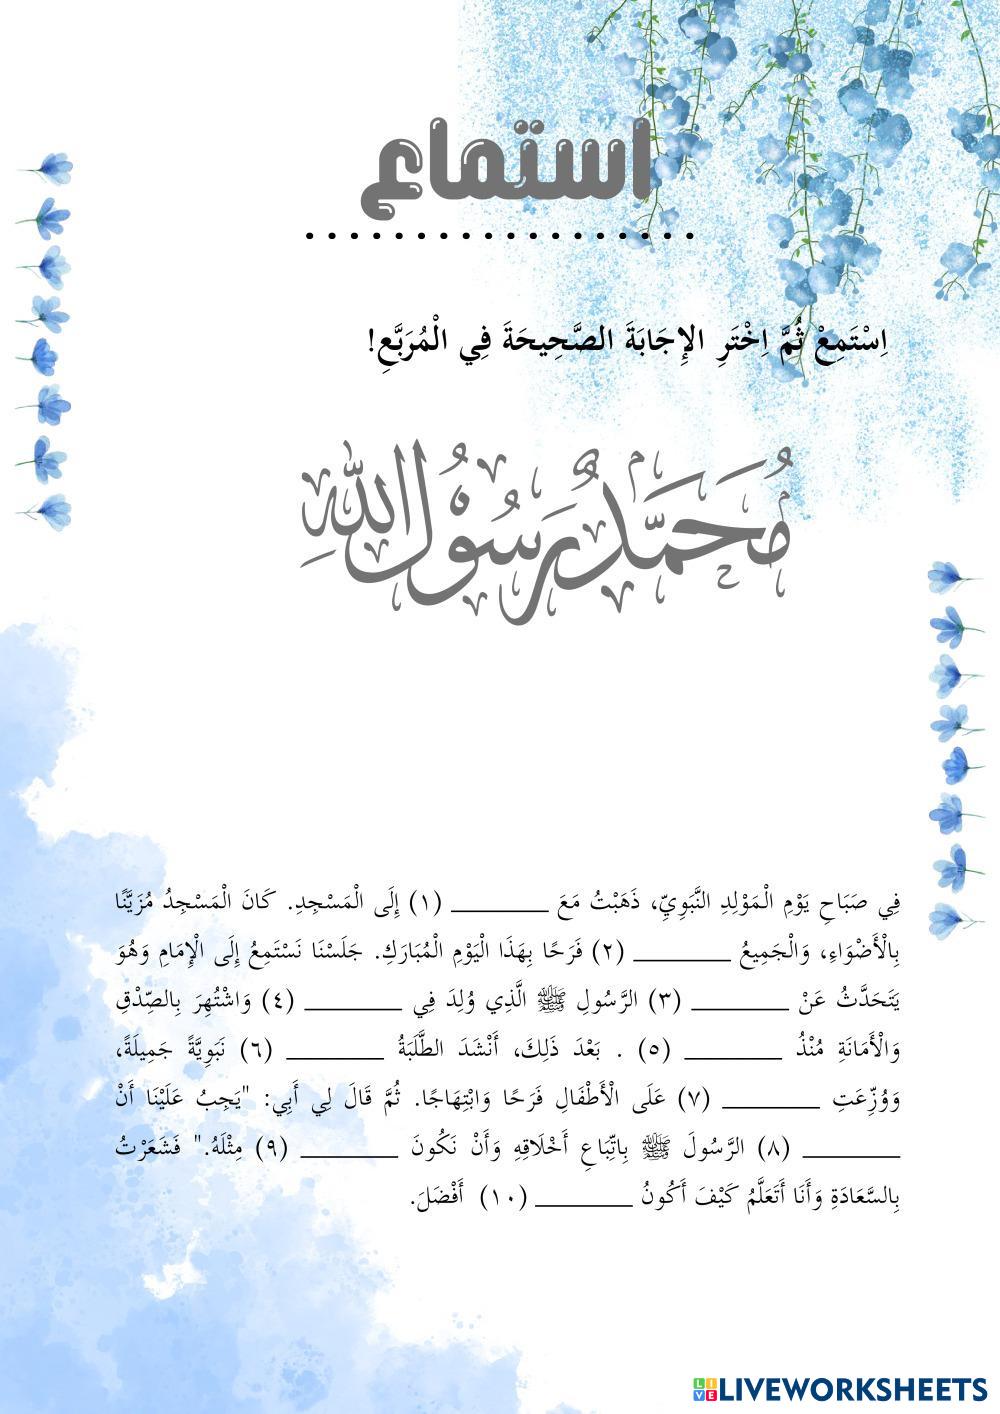 استماع
..................
اِسْتَمِعْ ثُمَّ اِخْتَرِ الإِجَابَةَ الصَّحِيحَةَ فِي الْمُرَبَّعِ!
مُحَمَّدٌ رَسُوْلُ اللهِ
فِي صَبَاحِ يَوْمِ الْمَوْلِدِ النَّبَوِيِّ، ذَهَبْتُ مَعَ ________ (١) إِلَى الْمَسْجِدِ. كَانَ الْمَسْجِدُ مُزَيَّنًا
بِالْأَضْوَاءِ، وَالْجَمِيعُ ________ (٢) فَرَحًا بِهَذَا الْيَوْمِ الْمُبَارَكِ. جَلَسْنَا نَسْتَمِعُ إِلَى الْإِمَامِ وَهُوَ
يَتَحَدَّثُ عَنْ ________ (٣) الرَّسُولِ ﷺ الَّذِي وُلِدَ فِي ________ (٤) وَاشْتُهِرَ بِالصِّدْقِ
وَالْأَمَانَةِ مُنْذُ ________ (٥) . بَعْدَ ذَلِكَ، أَنْشَدَ الطَّلَبَةُ ________ (٦) نَبَوِيَّةً جَمِيلَةً،
وَوُزِّعَتِ ________ (٧) عَلَى الْأَطْفَالِ فَرَحًا وَابْتِهَاجًا. ثُمَّ قَالَ لِي أَبِي: "يَجِبُ عَلَيْنَا أَنْ
________ (٨) الرَّسُولَ ﷺ بِاتِّبَاعِ أَخْلَاقِهِ وَأَنْ نَكُونَ ________ (٩) مِثْلَهُ." فَشَعَرْتُ
بِالسَّعَادَةِ وَأَنَا أَتَعَلَّمُ كَيْفَ أَكُونُ ________ (١٠) أَفْضَلَ.
LIVEWORKSHEETS